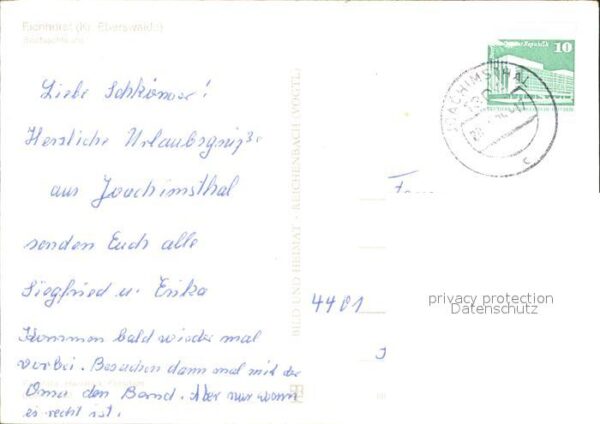 Eichheide (Kr. Eberswalde)
Liebe Schkönser!
Herzliche Urlaubsgrüße
aus Joachimsthal
senden Euch alle
Siegfried u. Erika
Kommen bald wieder mal
vorbei. Besuchen dann mal mit der
Oma den Bernd. Aber nur wenn
es recht ist.
BILD UND HEIMAT · REICHENBACH (VOGTL)
Republik 10
JOACHIMSTHAL
c
4401
privacy protection
Datenschutz